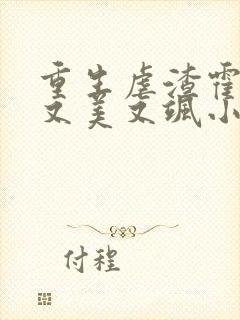 重生虐渣霍
又美又飒小
付程